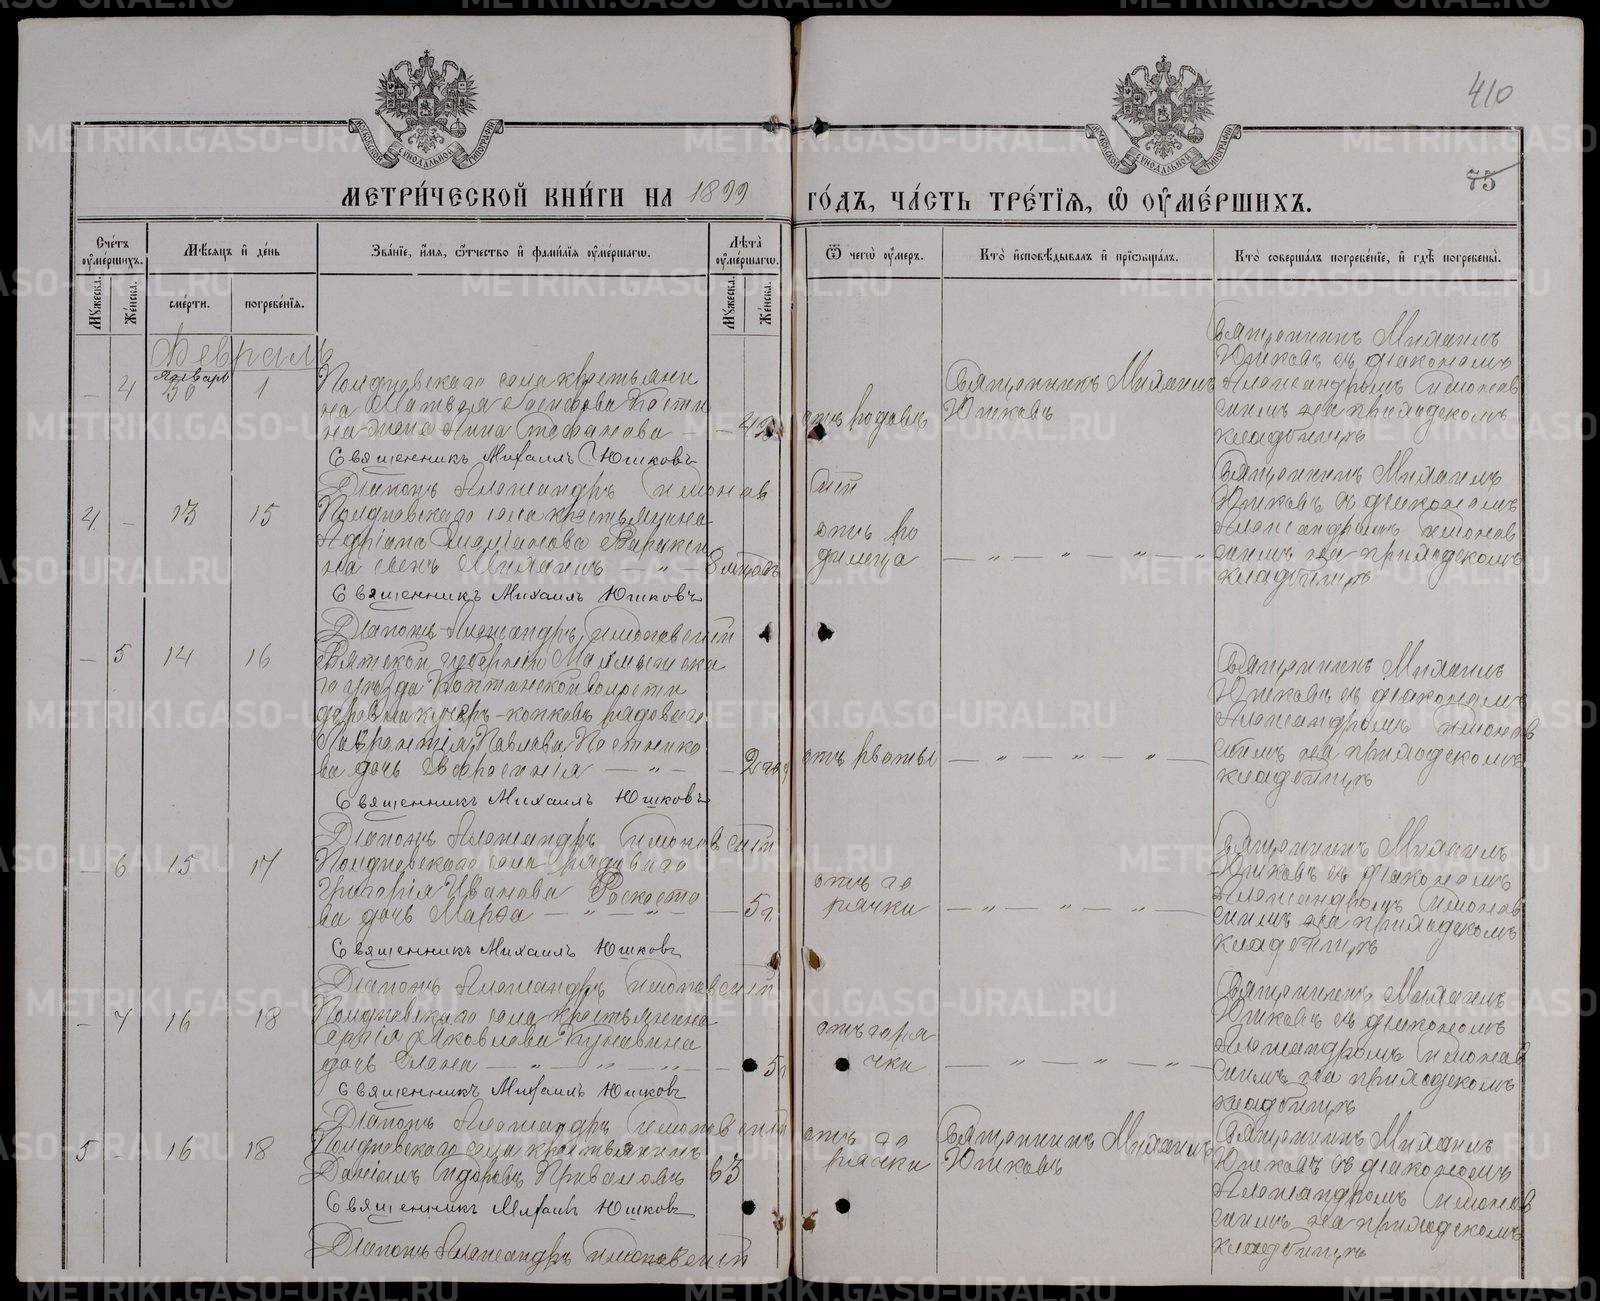 410
75
МЕТРИ́ЧЕСКОЙ КНИ́ГИ НА 1899 ГО́ДЪ, ЧА́СТЬ ТРЕ́ТІЯ, Ѡ ОУ҆МЕ́РШИХЪ.
Сче́тъ оу҆ме́ршихъ.
Мꙋ́жеска.
Же́нска.
Мѣ́сяцъ и҆ де́нь
сме́рти.
погребе́нїя.
Зва́нїе, и҆́мя, ѻ҆́тчество и҆ фами́лїя оу҆ме́ршагѡ.
Лѣ́та оу҆ме́ршагѡ.
Мꙋ́жеска.
Же́нска.
Ѿ чегѡ̀ оу҆́меръ.
Кто̀ и҆сповѣ́дывалъ и҆ прїѡбща́лъ.
Кто̀ соверша́лъ погребе́нїе, и҆ гдѣ̀ погребены̀.
Февраль
Январь
– 4 30 1
Полдневскаго села крестьяни
на Матвея
на жена Анна Стефанова – – 42
отъ родовъ
Священникъ Михаилъ
Юшковъ
Священникъ Михаилъ
Юшковъ съ діакономъ
Александромъ Симонов
скимъ на приходскомъ
кладбищѣ
Священникъ Михаилъ Юшковъ
Діаконъ Александръ Симонов скій
4 – 13 15
Полдневскаго села крестьянина
Адріана
на сынъ Михаилъ – „ – 8 мцовъ
отъ ро
димца
– „ – „ – „ – „
Священникъ Михаилъ
Юшковъ съ діакономъ
Александромъ Симонов
скимъ на приходскомъ
кладбищѣ
Священникъ Михаилъ Юшковъ
Діаконъ Александръ Симоновскій
– 5 14 16
Вятской губерніи Малмыжска
го уѣзда волости
деревни рядоваго
Лаврентія Павлова Постнико
ва дочь Евфросинія – „ – – 2 год
отъ рвоты
– „ – „ – „ –
Священникъ Михаилъ
Юшковъ съ діакономъ
Александромъ Симонов
скимъ на приходскомъ
кладбищѣ
Священникъ Михаилъ Юшковъ
Діаконъ Александръ Симонов скій
– 6 15 17
Полдневскаго села рядоваго
Григорія Иванова
ва дочь Марѳа – „ – „ – – 5 г
отъ го
рячки
– „ – „ – „ –
Священникъ Михаилъ
Юшковъ съ діакономъ
Александромъ Симонов
скимъ на приходскомъ
кладбищѣ
Священникъ Михаилъ Юшковъ
Діаконъ Александръ Симоновскій
– 7 16 18
Полдневскаго села крестьянина
Сергія Яковлева Кунавина
дочь Елена – „ – „ – „ – 5 г
отъ горя
чки
– „ – „ – „
Священникъ Михаилъ
Юшковъ съ діакономъ
Александромъ Симонов
скимъ на приходскомъ
кладбищѣ
Священникъ Михаилъ Юшковъ
Діаконъ Александръ Симоновскій
5 – 16 18
Полдневскаго села крестьянинъ
Даніилъ Сидоровъ Приваловъ 63
отъ го
рячки
Священникъ Михаилъ
Юшковъ
Священникъ Михаилъ
Юшковъ съ діакономъ
Александромъ Симонов
скимъ на приходскомъ
кладбищѣ
Священникъ Михаилъ Юшковъ
Діаконъ Александръ Симоновскій
METRIKI.GASO-URAL.RU